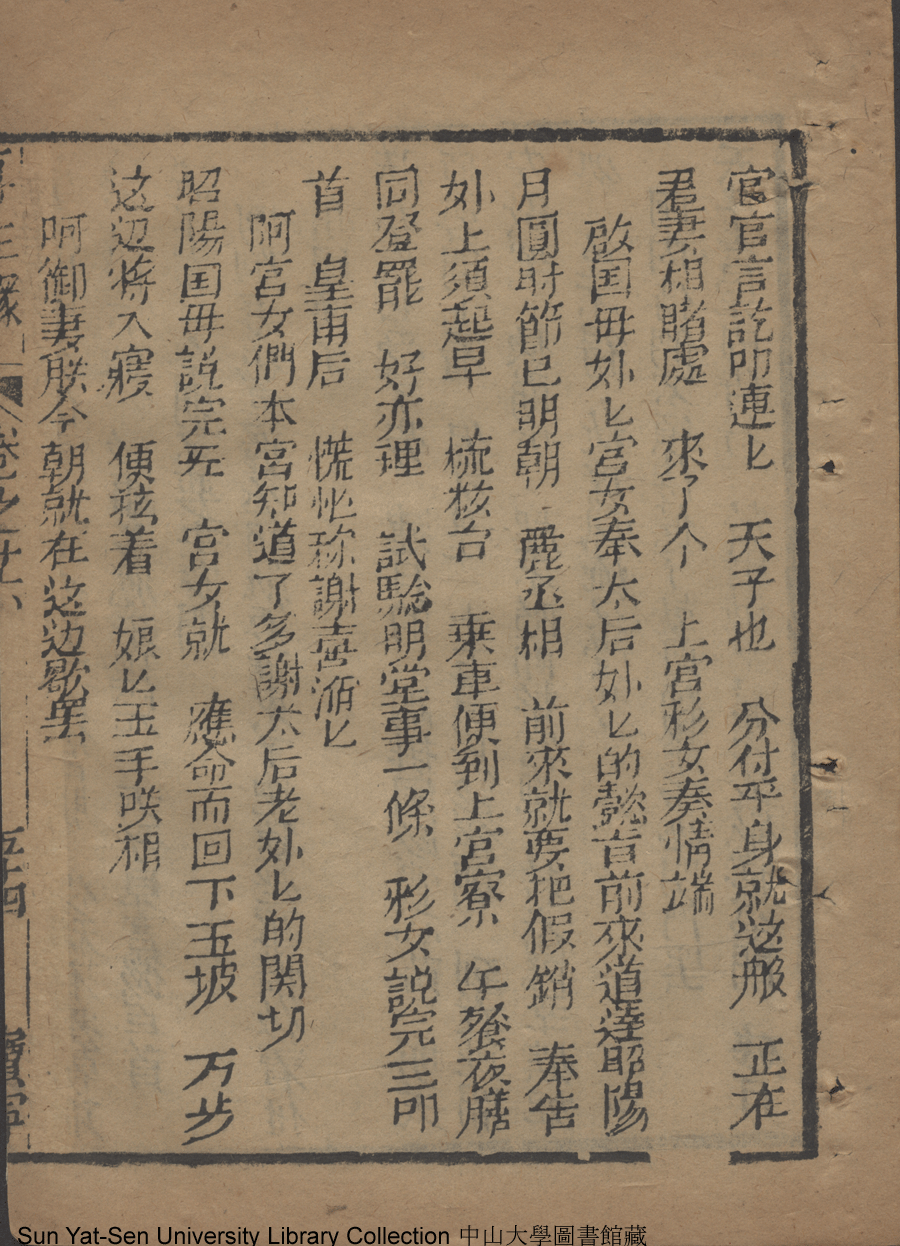 官官言訖叩連匕　天子也　分付平身就这般　正在
君妻相睹處　來了个　上宫彩女奏情端
啟国毋外匕宫女奉太后外匕的懿旨前來道達昭陽
月圓時節已明朝　麗丞相　前來就要把假銷　奉告
外上須起早　梳核台　乗車便到上宫寮　午餐夜膳
同登罷　好亦理　試騐明堂事一條　彩女説完三叩
首　皇甫后　慌忙称謝壺循匕
阿宫女們本宫知道了多謝太后老外匕的関切
昭陽国毋説完死　宫女就　應命而回下玉坡　万步
这辺将入寢　便拡着　娘匕玉手咲相
呵御妻朕今朝就在这边歇罢
卷之十六
五四
寶寧
Sun Yat-Sen University Library Collection 中山大學圖書館藏